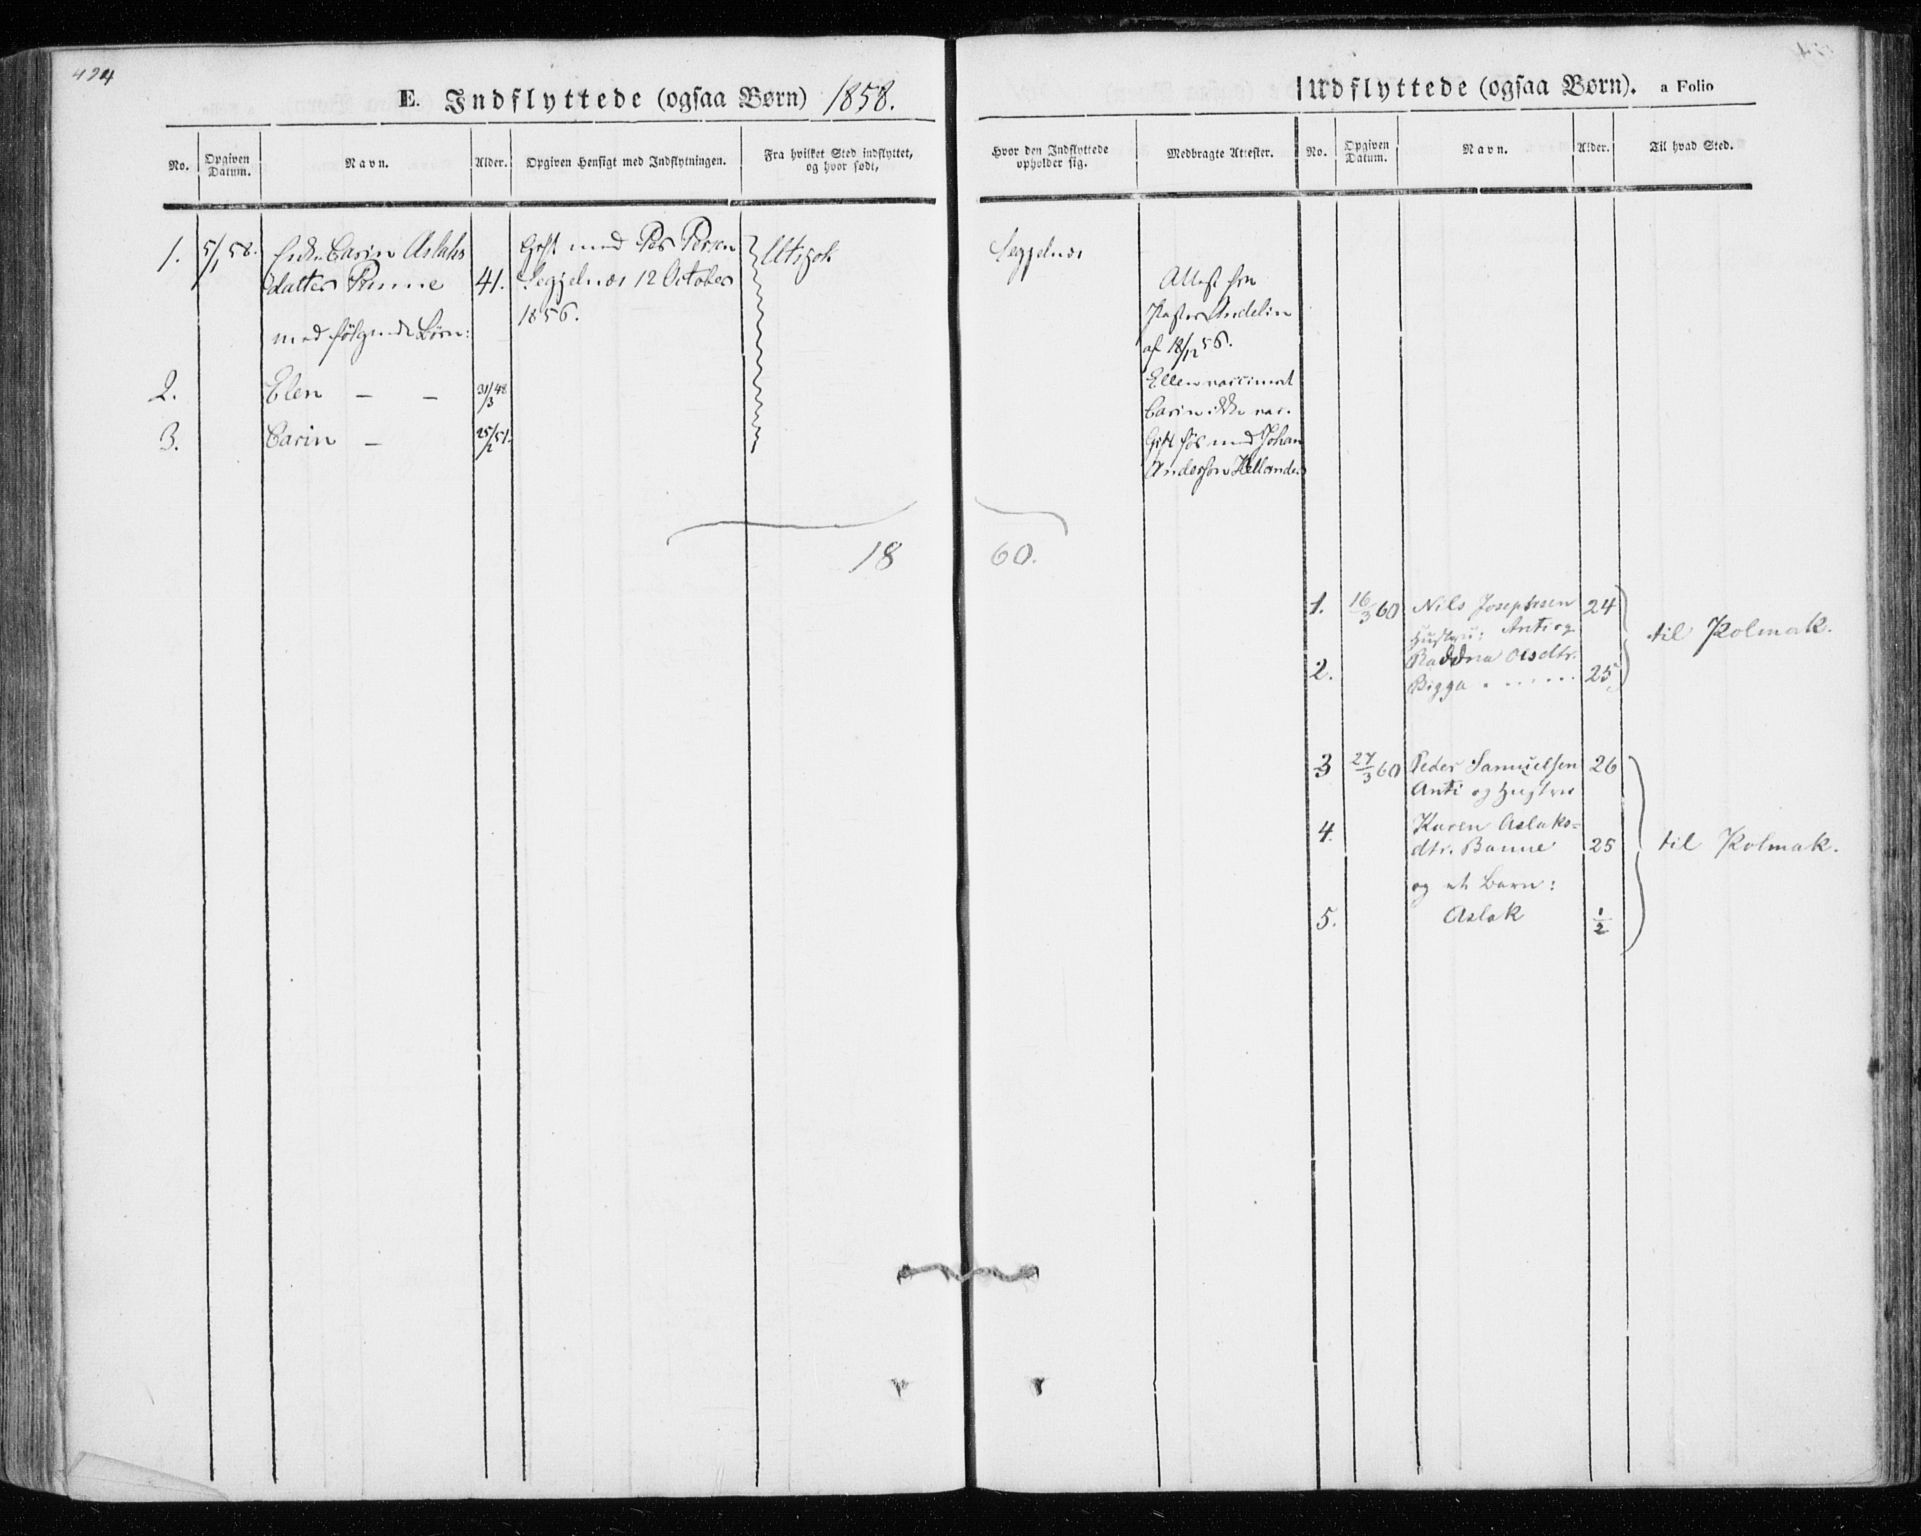 424
E. Indflyttede (ogsaa Børn) 1858.
No. Opgiven Datum. Navn. Alder. Opgiven Hensigt med Indflytningen. Fra hvilket Sted indflyttet, og hvor født,
1. 5/1 58. Enke Carin Aslaks
datter 41.
med følgende Børn:
Gift med Per Persen
Seggelnæs 12 October
1856.
Utsjok
2. Elen — — 31/3 48
3. Carin — 25/2 51.
18
Indflyttede (ogsaa Børn). a Folio
Hvor den Indflyttede opholder sig. Medbragte Attester. No. Opgiven Datum. Navn. Alder. Til hvad Sted.
Seggelnæs
Attest fra
Pastor Andelin
af 18/12 56.
Ellen vaccineret
Carin ikke vac.
Gift før med Johan
Anderson Hellander
60.
1. 16/3 60 Nils Josephsen 24
Hustru: Anti og
2. Raddna Olsdtr.
Bigga . . . . . . 25
til Polmak.
3 27/3 60 Peder Samuelsen 26
Anti og Hustru
4. Karen Aslaks=
dtr. Banne 25
og et Barn:
5. Aslak 1/2
til Polmak.